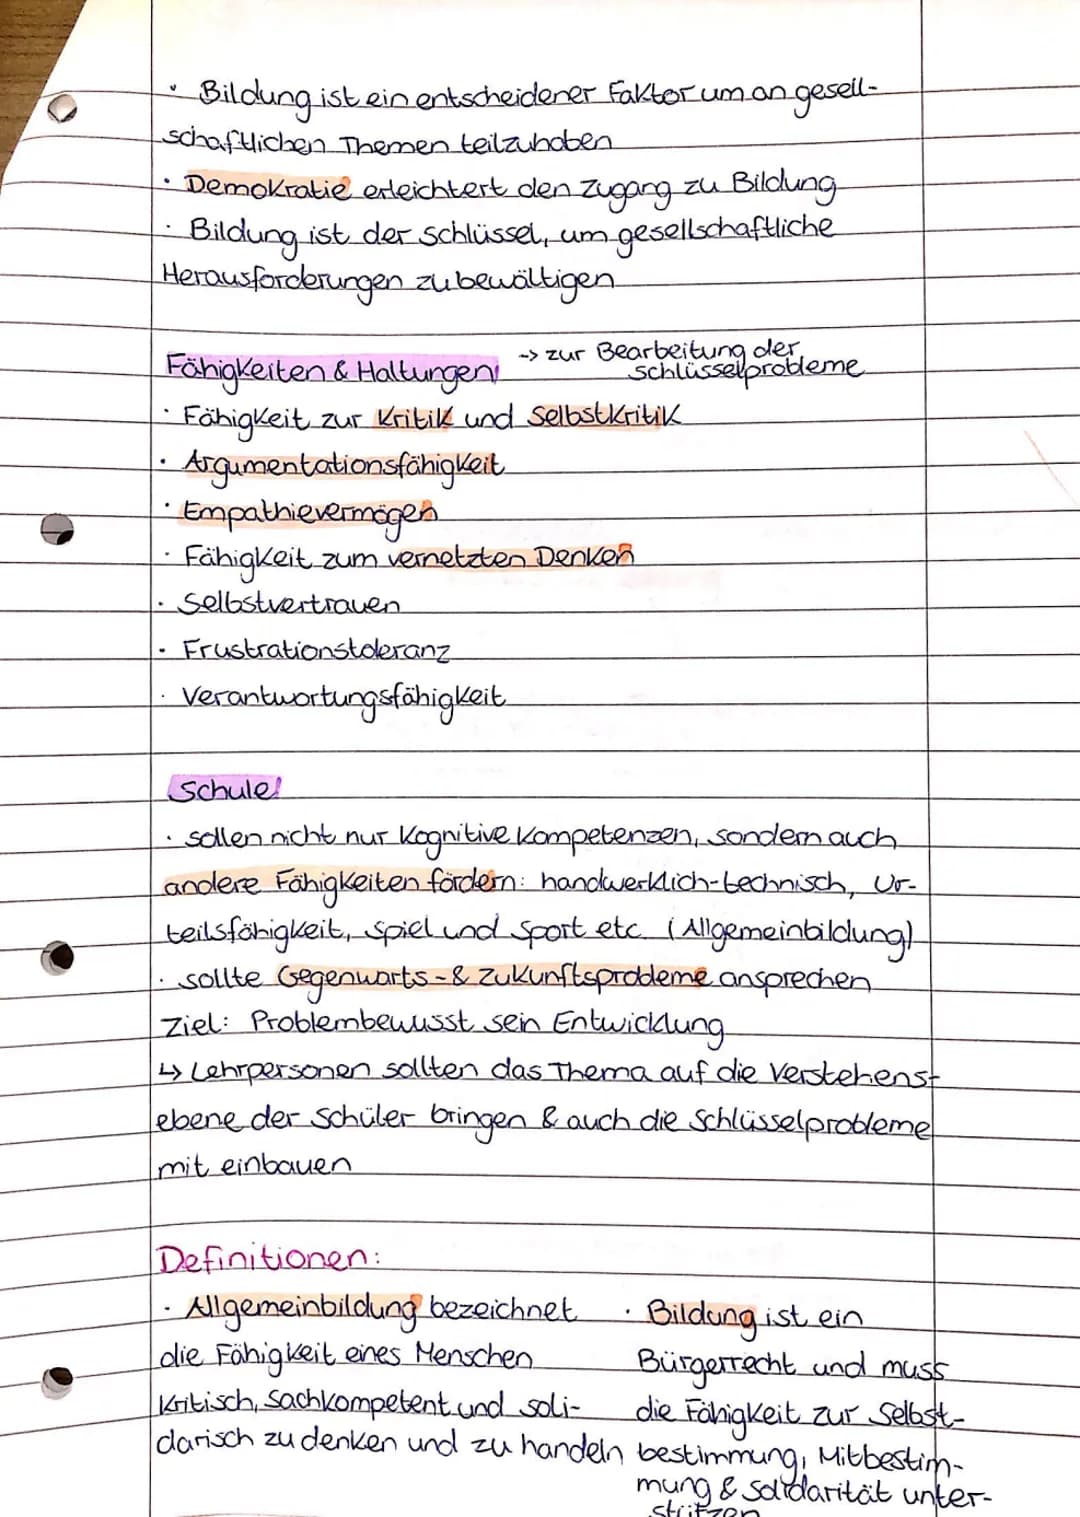 · Bildung ist ein entscheidener Faktor um an gesell-
schaftlichen Themen teilzuhaben
· Demokratie erleichtert den Zugang zu Bildung
· Bildung ist der Schlüssel, um gesellschaftliche
Herausforderungen zu bewältigen
Fähigkeiten & Haltungen: -> zur Bearbeitung der
Schlüsselprobleme
· Fähigkeit zur Kritik und Selbstkritik
· Argumentationsfähigkeit
· Empathievermögen
· Fähigkeit zum vernetzten Denken
· Selbstvertrauen
· Frustrationstoleranz
· Verantwortungsfähigkeit
Schule:
· sollen nicht nur Kognitive Kompetenzen, sondern auch
andere Fähigkeiten fördern: handwerklich-technisch, Ur-
teilsfähigkeit, Spiel und Sport etc. (Allgemeinbildung)
· sollte Gegenwarts-& Zukunftsprobleme ansprechen
Ziel: Problembewusst sein Entwicklung
↳ Lehrpersonen sollten das Thema auf die Verstehens-
ebene der Schüler bringen & auch die Schlüsselprobleme
mit einbauen
Definitionen:
· Allgemeinbildung bezeichnet
die Fähigkeit eines Menschen
Kritisch, Sachkompetent und soli-
darisch zu denken und zu handeln
· Bildung ist ein
Bürgerrecht und muss
die Fähigkeit zur Selbst-
bestimmung, Mitbestim-
mung & Solidarität unter-
stützen